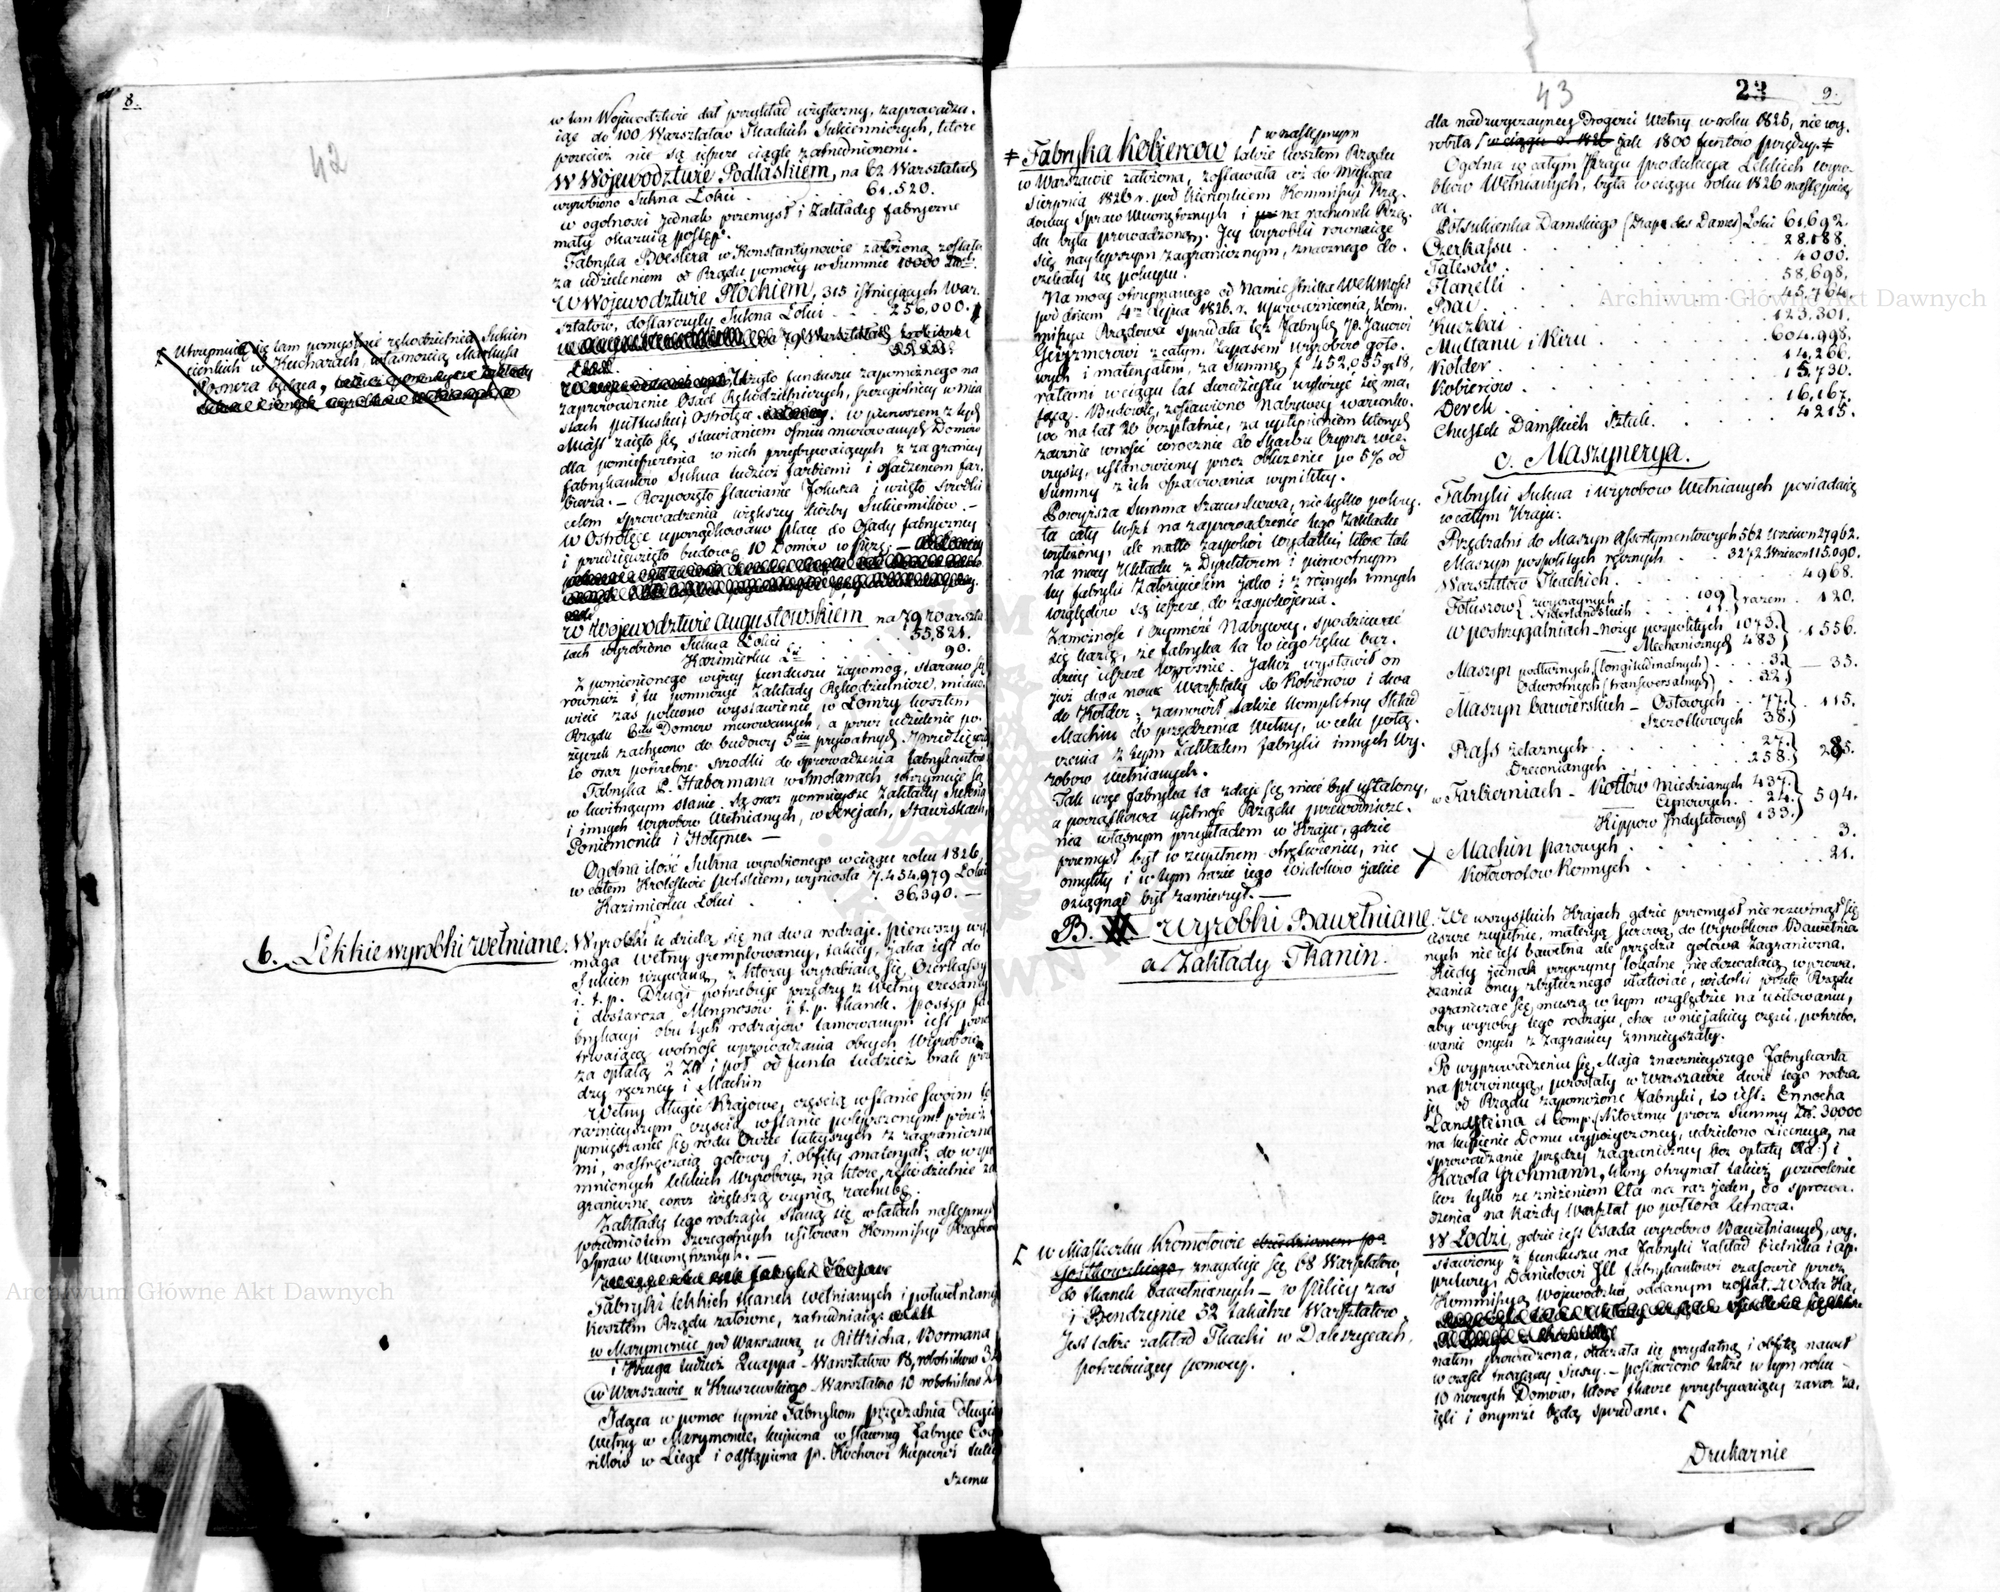 8.
42
w tem Woiewodztwie dał przykład użyteczny, zaprowadza-
iąc do 100 Warsztatów Tkackich Sukienniczych, które
przecież nie są ieszcze ciągle zatrudnionemi.
W Woiewodztwie Podlaskiem, na 62 Warsztatach
wyrobiono Sukna Łokci . . 61.520.
w ogolności jednak przemysł i Zakłady fabryczne
mały okazuią postęp.
Fabryka w Konstantynowie założoną została
za udzieleniem od Rządu pomocy w Summie 10000
W Woiewodztwie Płockiem, 315 istniejących War-
sztatów, dostarczyły Sukna Łokci . . 256,000.
Utrzymuie się tam pomyślnie rękodzielnia Sukien
cienkich w Kucharach własnością Machulla
będąca,
Użyto funduszu zapomożnego na
zaprowadzenie Osad Rękodzielniczych, szczególniey w mia-
stach Pułtusku i Ostrołęce. W pierwszem z tych
Miast zaięto się stawianiem ośmiu murowanych Domów
dla pomieszczenia w nich przybywaiących z zagranicy
fabrykantów Sukna tudzież farbierni i osadzeniem far-
biarza. — Rozpoczęto stawianie Folusza i użyto środki
celem sprowadzenia większey liczby Sukienników. —
W Ostrołęce uporządkowano place do Osady fabryczney
i przedsięwzięto budowę 10 Domów
W Woiewodztwie Augustowskiem na 79 Warszta-
tach wyrobiono Sukna Łokci . . 55,821.
Kazimierku Ł. . . 90.
Z pomienionego wyżey funduszu zapomog, starano się
również i tu pomnożyć Zakłady Rękodzielnicze, miano-
wicie zaś polecono wystawienie w Łomży kosztem
Rządu 6ciu Domów murowanych, a przez udzielenie po-
życzek zachęcono do budowy 5ciu prywatnych. Przedsięwzię-
to oraz potrzebne środki do sprowadzenia fabrykantów.
Fabryka L. Habermana w Smolanach, utrzymuie się
w kwitnącym stanie. Są oraz pomnieysze Zakłady Sukna
i innych Wyrobów Wełnianych, w Serejach, Stawiskach,
Poniemoniu i Hołynce. —
Ogolna ilość Sukna wyrobionego w ciągu roku 1826
w całem Krolestwie Polskiem, wyniosła 7.454,979 Łokci
Kazimierku Łokci . . 36,390. —
b. Lekkie wyrobki wełniane.
Wyrobki te dzielą się na dwa rodzaje. Pierwszy wy-
maga Wełny gremplowaney, takiey, jaka iest do
Sukien używaną, z którey wyrabiaią się Czerkasy
i. t. p. Drugi potrzebuje przędzy z Wełny czesaney
i dostarcza Merynosów i t. p. tkanek. Postęp fa-
brykacyi obu tych rodzajów tamowanym iest przez
trwaiącą wolność wprowadzania obcych Wyrobów
za opłatą 2 Zł i pół od funta tudzież brak przę-
dzy ręczney i Machin
Wełny długie Krajowe, częścią w stanie swoim te-
raźnieyszym częścią w stanie polepszonym przez
pomięszanie się rodu Owiec tuteyszych z zagraniczne-
mi, nastręczaią gotowy i obfity materyał do wspo-
mnionych lekkich Wyrobów, na które rękodzielnie za-
graniczne coraz większą czynią rachubę.
Zakłady tego rodzaju, staną się w latach następnych
przedmiotem szczególnych usiłowań Kommissyi Rządowey
Spraw Wewnętrznych. —
Fabryki lekkich tkanek wełnianych i półwełnianych
kosztem Rządu założone, zatrudniaiąc
w Marymoncie pod Warszawą u Rittricha, Bormana
i Kruga tudzież Quappa – Warsztatow 18, robotnikow
w Warszawie u Kruszewskiego Warsztatow 10 robotnikow
Idąca w pomoc tymże Fabrykom przędzalnia długiey
Wełny w Marymoncie, kupiona w sławney Fabryce
w Liege i odstąpiona p. Kochowi Kupcowi tutey-
szemu
43
23
9.
‡ Fabryka Kobierców także kosztem Rządu
w następnym
w Warszawie założona, zostawała aż do Miesiąca
Sierpnia 1826 r. pod kierunkiem Kommissyi Rzą-
dowey Spraw Wewnętrznych i na rachunek Rzą-
du była prowadzoną. Jey wyrobki rownaiące
się naylepszym zagranicznym, znacznego do-
czekały się pokupu.
Na mocy otrzymanego od Namiestnika W. K. Mości
pod dniem 4m Lipca 1826. r. upoważnienia, Kom-
missya Rządowa sprzedała też Fabrykę p. Janowi
Geyzmerowi z całym Zapasem wyrobów goto-
wych i materyałem, za Summę f 452,055 gr 18,
ratami w ciągu lat dwudziestu wypłacać się ma-
iącą. Budowlę, zostawiono Nabywcy warunko-
wo na lat 20 bezpłatnie, za upłynieniem których
zacznie wnosić corocznie do Skarbu Czynsz wie-
czysty, ustanowiony przez obliczenie po 5% od
Summy z ich oszacowania wynikłey.
Powyższa Summa Szacunkowa, nie tylko pokry-
ła cały koszt na zaprowadzenie tego Zakładu
wyłożony, ale nadto zaspokoi wydatki, które tak
na mocy Układu z Dyrektorem i pierwotnym
tey fabryki Założycielem jako i z rożnych innych
względów są ieszcze do zaspokojenia.
Zamożność i czynność Nabywcy, spodziewać
się każą, że fabryka ta w iego ręku bar-
dziey ieszcze wzrośnie. Jakoż wystawił on
już dwa nowe Warsztaty do Kobierców i dwa
do Kołder; zamowił także kompletny skład
Machin do przędzenia Wełny, w celu połą-
czenia z tym Zakładem fabryki innych Wy-
robów Wełnianych.
Tak więc fabryka ta zdaje się mieć byt ustalony,
a początkowa usilność Rządu przewodnicze-
nia własnym przykładem w Kraju, gdzie
przemysł był w zupełnem odrętwieniu, nie
omyliły i w tym razie jego widoków jakie
osiągnąć był zamierzył. —
B. Wyrobki Bawełniane.
a. Zakłady Tkanin.
w Miasteczku Kromołowie
znayduje się 68 Warsztatów
do tkanek bawełnianych — w Pilicy zaś
i Bendzynie 52 takichże Warsztatów.
Jest także zakład Tkacki w Daleszycach,
potrzebuiący pomocy.
dla nadzwyczayney Drogości Wełny w roku 1826, nie wy-
robiła jak 1800 funtów przędzy. ‡
Ogolna w całym Kraju produkcya Lekkich wyro-
bków Wełnianych, była w ciągu roku 1826 następuią-
ca.
Połsukienka Damskiego (Drap des Dames) Łokci 61,692.
Czerkasu . . 28.188.
Falesow . . 4000.
Flanelli . . 58,698.
Boi . . 45,764.
Kuczbai . . 123,301.
Multanu i Kiru . . 604,998.
Kołder . . 14,266.
Kobiercow . . 15,730.
Derek . . 16,167.
Chustek Damskich Sztuk . . 4215.
c. Maszynerya.
Fabryki Sukna i wyrobow Wełnianych posiadaią
w całym Kraju:
Przędzalni do Maszyn Assortymentowych 562 wrzecion 27962.
Maszyn pospolitych ręcznych . . 3272 Wrzecion 115.090.
Warsztatow Tkackich . . 4968.
Foluszow { zwyczaynych . . 109 } razem . 120.
Niderlandzkich . . 11.
w postrzygalniach – nożyc pospolitych 1073 } 1556.
Mechanicznych 483
Maszyn podłużnych (longitudinalnych) . . 3 } — 35.
Odwrotnych (transwersalnych) . . 32.
Maszyn barwierskich – Ostowych . . 77. } . 115.
Szczotkowych 38.
Prass żelaznych . . 27. } 285.
Drewnianych . . 258.
w Farbierniach – Kotłow Miedzianych 437. } 594.
Cynowych . . 24.
Kippow Indychtowych 133.
Machin parowych . . 3.
Kołowrotow Konnych . . 21.
We wszystkich Krajach, gdzie przemysł nie rozwinął się
ieszcze zupełnie, materyą surową do Wyrobkow Bawełnia-
nych nie iest bawełna ale przędza gotowa zagraniczna.
Kiedy jednak przyczyny lokalne, nie dozwalaią wprowa-
dzania oney zbytecznego ułatwiać, widoki przeto Rządu
ograniczać się muszą w tym względzie na usiłowaniu,
aby wyroby tego rodzaju, choć w niejakiey części, potrzebo-
wanie onych z Zagranicy zmnieyszały.
Po wyprowadzeniu się Maja znacznieyszego Fabrykanta
na prowincyą, pozostały w Warszawie dwie tego rodza-
ju od Rządu zapomożone Fabryki, to iest: Ennocha
Landsteina et Comp. (któremu prócz Summy Złt. 30000
na kupienie Domu wypożyczoney, udzielono Licencyą na
sprowadzanie przędzy zagraniczney bez opłaty Cła) i
Karola Grohmann, który otrzymał takież pozwolenie
lecz tylko ze zniżeniem Cła na raz jeden, do sprowa-
dzenia na każdy Warsztat po półtora letnara.
W Łodzi, gdzie iest Osada wyrobow Bawełnianych, wy-
stawiony z funduszu na Fabryki Zakład Bielnika i ap-
pretury, Danielowi Ill fabrykantowi czasowie przez
Kommissyą Wojewodzką oddanym został. Woda Ka-
nałem prowadzona, okazała się przydatną i obfitą nawet
w czasie trwaiącey suszy. — Postawiono także w tym roku
10 nowych Domow, które tkacze przybywaiący zaraz za-
ięli i onymże będą sprzedane.
Drukarnie
Archiwum Główne Akt Dawnych
Archiwum Główne Akt Dawnych